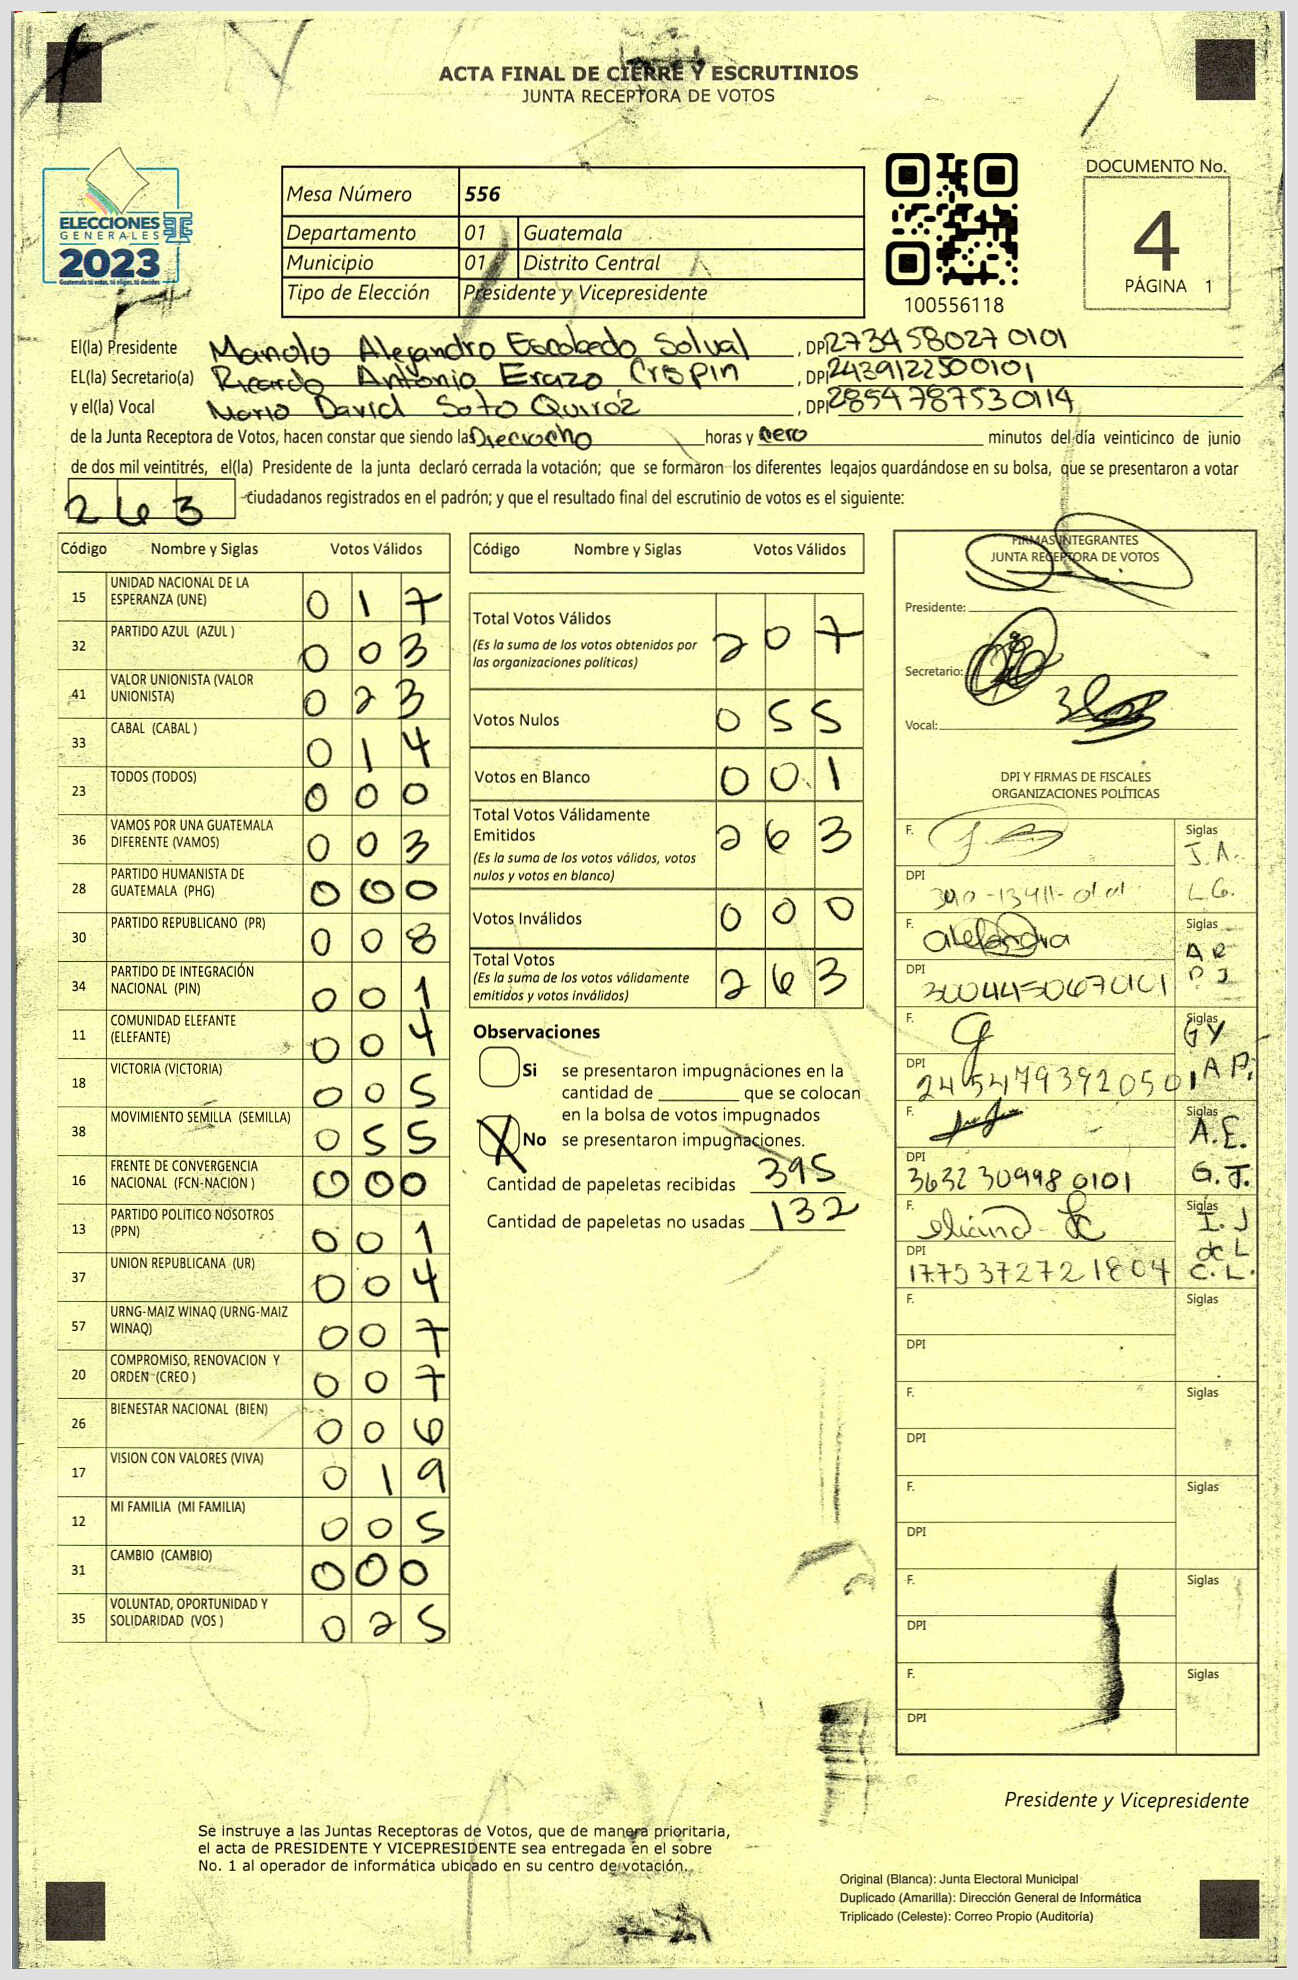 ACTA FINAL DE CIERRE Y ESCRUTINIOS
JUNTA RECEPTORA DE VOTOS
ELECCIONES
GENERALES
2023
Guatemala tú votas, tú eliges, tú decides
Mesa Número 556
Departamento 01 Guatemala
Municipio 01 Distrito Central
Tipo de Elección Presidente y Vicepresidente
100556118
DOCUMENTO No.
4
PÁGINA 1
El(la) Presidente Manolo Alejandro Escobedo Solval, DPI 2734580270101
EL(la) Secretario(a) Ricardo Antonio Erazo Crispin, DPI 2439122500101
y el(la) Vocal Mario David Soto Quiroz, DPI 2854787530114
de la Junta Receptora de Votos, hacen constar que siendo las Dieciocho horas y cero minutos del día veinticinco de junio
de dos mil veintitrés, el(la) Presidente de la junta declaró cerrada la votación; que se formaron los diferentes legajos guardándose en su bolsa, que se presentaron a votar
263 ciudadanos registrados en el padrón; y que el resultado final del escrutinio de votos es el siguiente:
Código Nombre y Siglas Votos Válidos
15 UNIDAD NACIONAL DE LA ESPERANZA (UNE) 017
32 PARTIDO AZUL (AZUL ) 003
41 VALOR UNIONISTA (VALOR UNIONISTA) 023
33 CABAL (CABAL ) 014
23 TODOS (TODOS) 000
36 VAMOS POR UNA GUATEMALA DIFERENTE (VAMOS) 003
28 PARTIDO HUMANISTA DE GUATEMALA (PHG) 000
30 PARTIDO REPUBLICANO (PR) 008
34 PARTIDO DE INTEGRACIÓN NACIONAL (PIN) 001
11 COMUNIDAD ELEFANTE (ELEFANTE) 004
18 VICTORIA (VICTORIA) 005
38 MOVIMIENTO SEMILLA (SEMILLA) 055
16 FRENTE DE CONVERGENCIA NACIONAL (FCN-NACION ) 000
13 PARTIDO POLITICO NOSOTROS (PPN) 001
37 UNION REPUBLICANA (UR) 004
57 URNG-MAIZ WINAQ (URNG-MAIZ WINAQ) 007
20 COMPROMISO, RENOVACION Y ORDEN (CREO ) 007
26 BIENESTAR NACIONAL (BIEN) 006
17 VISION CON VALORES (VIVA) 019
12 MI FAMILIA (MI FAMILIA) 005
31 CAMBIO (CAMBIO) 000
35 VOLUNTAD, OPORTUNIDAD Y SOLIDARIDAD (VOS ) 025
Código Nombre y Siglas Votos Válidos
Total Votos Válidos 207
(Es la suma de los votos obtenidos por
las organizaciones políticas)
Votos Nulos 055
Votos en Blanco 001
Total Votos Válidamente
Emitidos 263
(Es la suma de los votos válidos, votos
nulos y votos en blanco)
Votos Inválidos 000
Total Votos 263
(Es la suma de los votos válidamente
emitidos y votos inválidos)
Observaciones
Si se presentaron impugnáciones en la
cantidad de ________ que se colocan
en la bolsa de votos impugnados
X No se presentaron impugnaciones.
Cantidad de papeletas recibidas 395
Cantidad de papeletas no usadas 132
FIRMAS INTEGRANTES
JUNTA RECEPTORA DE VOTOS
Presidente:
Secretario:
Vocal:
DPI Y FIRMAS DE FISCALES
ORGANIZACIONES POLÍTICAS
F. Siglas
J.A.
DPI L.G.
F. Alejandra Siglas
A R
DPI 3004450670101 P J
F. Siglas
G Y
DPI 2454793920501 A P.
F. Siglas
A.E.
DPI 3632309980101 G.J.
F. Siglas
I. J
de L
DPI 1775372721804 C.L.
F. Siglas
DPI
F. Siglas
DPI
F. Siglas
DPI
F. Siglas
DPI
F. Siglas
DPI
Presidente y Vicepresidente
Se instruye a las Juntas Receptoras de Votos, que de manera prioritaria,
el acta de PRESIDENTE Y VICEPRESIDENTE sea entregada en el sobre
No. 1 al operador de informática ubicado en su centro de votación.
Original (Blanca): Junta Electoral Municipal
Duplicado (Amarilla): Dirección General de Informática
Triplicado (Celeste): Correo Propio (Auditoría)